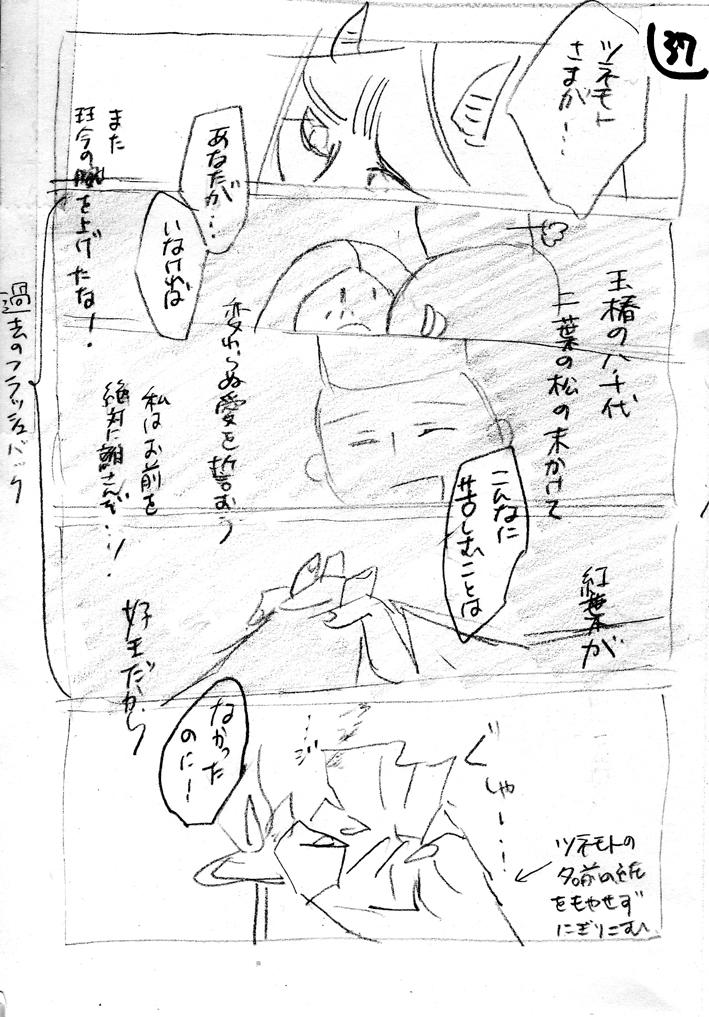 37
ツネモト
さまが…
あなたが…
いなければ
また
上げたな!
玉椿の八千代
二葉の松の末かけて
変わらぬ愛を誓おう
私はお前を
絶対に
こんなに
苦しむことは
紅葉が
好きだから
過去のフラッシュバック
なかった
のに!
…ジ
ぐしゃ…!
ツネモトの
名前の紙
をもやせず
にぎりこむ